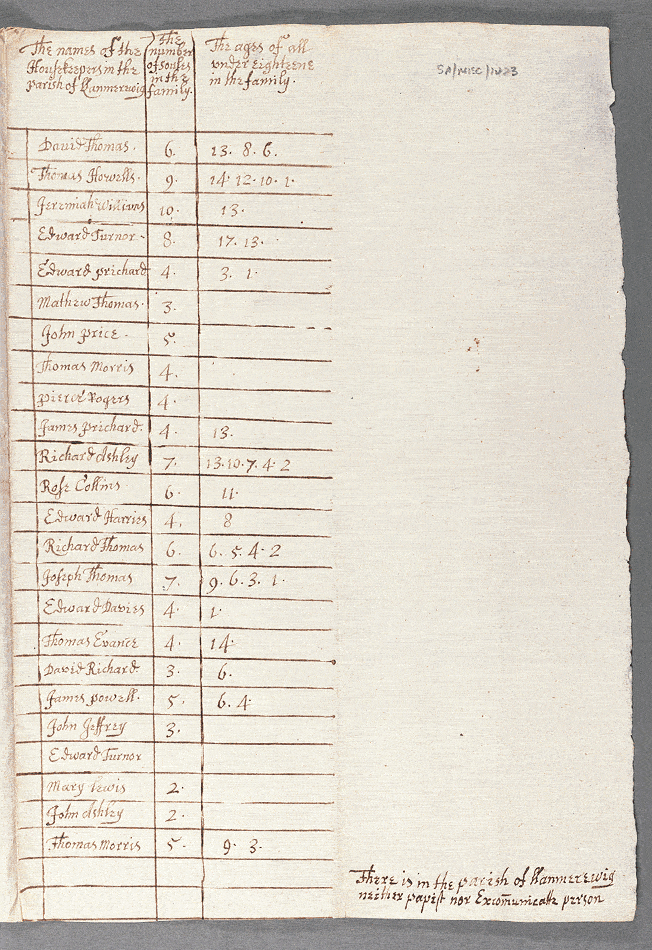 The names of the
Housekeepers in the
parish of Llanmerewig
the
number
of soules
in the
family.
The ages of all
under eighteene
in the family.
SA/MISC/1023
David Thomas. 6. 13. 8. 6.
Thomas Howells. 9. 14. 12. 10. 1.
Jeremiah Williams 10. 13.
Edward Turnor. 8. 17. 13.
Edward prichard 4. 3. 1.
Mathew Thomas. 3.
John price. 5.
Thomas Morris 4.
pierce Rogers 4.
James prichard. 4. 13.
Richard Ashley 7. 13. 10. 7. 4. 2
Rose Collins 6. 11.
Edward Harries 4. 8
Richard Thomas 6. 6. 5. 4. 2
Joseph Thomas 7. 9. 6. 3. 1.
Edward Davies 4. 1.
Thomas Evance 4. 14.
David Richard. 3. 6.
James powell. 5. 6. 4.
John Jeffrey 3.
Edward Turnor
Mary Lewis 2.
John Ashley 2.
Thomas Morris 5. 9. 3.
There is in the parish of Llanmerewig
neither papist nor Excom̄unicate person